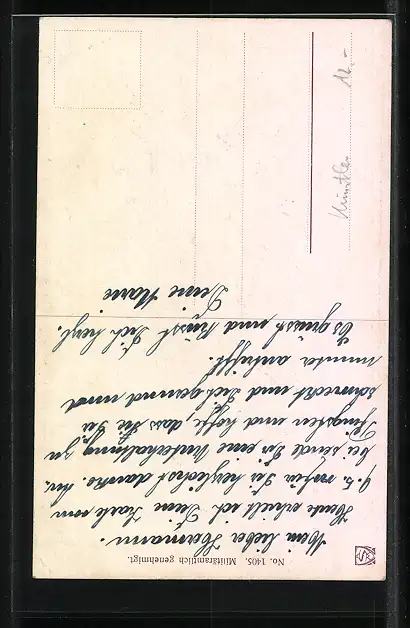 No. 1405. Militäramtlich genehmigt.
Mein lieber Hermann.
Heute erhielt ich Dein Karte vom
9.5. wofür Dir herzlichst danke. An
bei sende Dir eine Unterhaltung zu
Pfingsten und hoffe, dass sie Dir
schmeckt und Dich gesund und
munter antrifft.
Es grüsst und küsst Dich herzl.
Deine Marie
Künstler 12.-